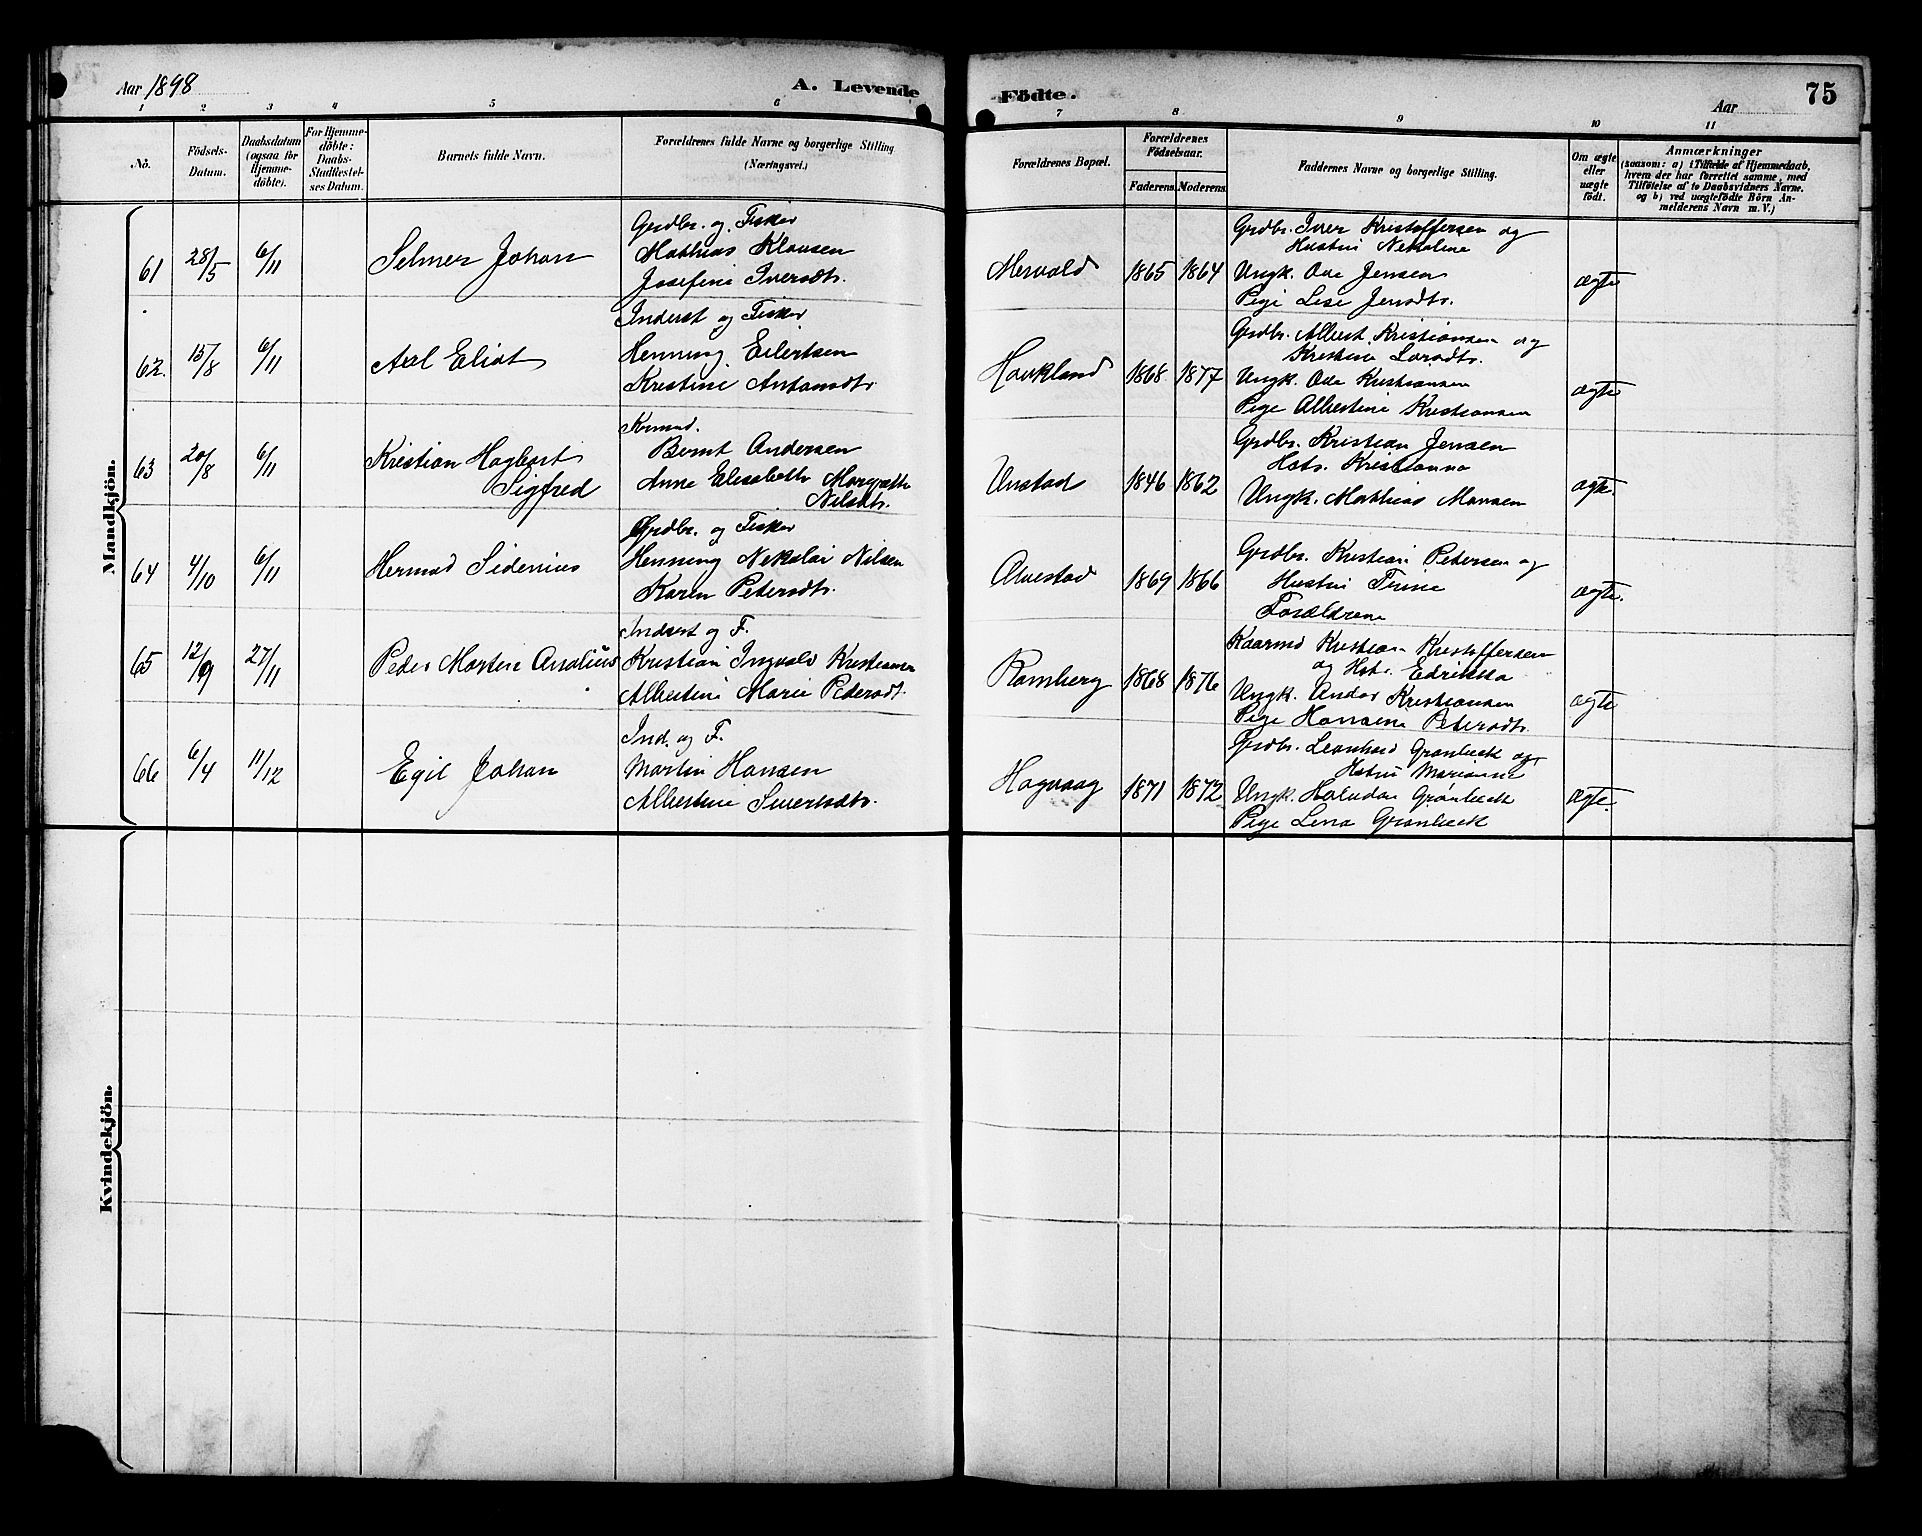 Aar 1898
A. Levende
Födte.
Aar
75
1 2 3 4 5 6 7 8 9 10 11
No.
Födsels-
Datum.
Daabsdatum
(ogsaa for
Hjemme-
döbte).
For Hjemme-
döbte:
Daabs-
Stadfæstel-
ses Datum.
Barnets fulde Navn.
Forældrenes fulde Navne og borgerlige Stilling
(Næringsvei.)
Forældrenes Bopæl.
Forældrenes
Födselsaar.
Faderens. Moderens.
Faddernes Navne og borgerlige Stilling.
Om ægte
eller
uægte
födt.
Anmærkninger
(saasom: a) i Tilfælde af Hjemmedaab,
hvem der har forrettet samme, med
Tilföielse af to Daabsvidners Navne.
og b) ved uægtefödte Börn An-
melderens Navn m. V.)
Mandkjön.
61
28/5
6/11
Selmer Johan
Grdbr. og Fisker
Mathias Klausen
Josefine Iversdtr.
Mervold
1865 1864
Grdbr. Iver Kristoffersen og
Hustru Nekoline
Ungk. Ove Jensen
Pige Lise Jensdtr.
ægte
62.
15/8
6/11
Axel Eliot
Inderst og Fisker
Henning Eilertsen
Kristine Antonsdtr.
Haukland
1868 1877
Grdbr. Albert Kristiansen og
Kristine Larsdtr.
Ungk. Ove Kristiansen
Pige Albertine Kristiansen
ægte
63
20/8
6/11
Kristian Hagbart
Sigfred
Kmd.
Bernt Andersen
Anne Elisabeth Margrethe
Nilsdtr.
Unstad
1846 1862
Grdbr. Kristian Jensen
Hstr. Kristianna
Ungk. Mathias Monsen
ægte.
64
4/10
6/11
Hermod Sidenius
Grdbr. og Fisker
Henning Nekolai Nilsen
Karen Petersdtr.
Alvestad
1869 1866
Grdbr. Kristian Petersen og
Hustru Trine
Forældrene
ægte.
65
12/9
27/11
Peder Martin Analius
Inderst og F.
Kristian Ingvald Kristiansen
Albertine Marie Pedersdt.
Ramberg
1868 1876
Kaarmd Kristian Kristoffersen
og Hst. Edrikka
Ungk. Andor Kristiansen
Pige Hansine Petersdtr.
ægte
66
6/4
11/12
Egil Johan
Ind. og F.
Martin Hansen
Albertine Sivertsdtr.
Hagvaag
1871 1872
Grdbr. Leonhard Grønbeck og
Hstru Marianne
Ungk. Halvdan Grønbeck
Pige Lena Grønbeck
ægte.
Kvindekjön.